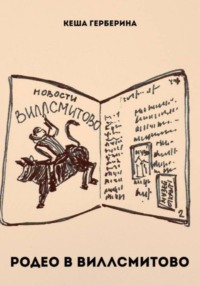 КЕША ГЕРБЕРИНА
НОВОСТИ
ВИЛЛСМИТОВО
2
РОДЕО В ВИЛЛСМИТОВО